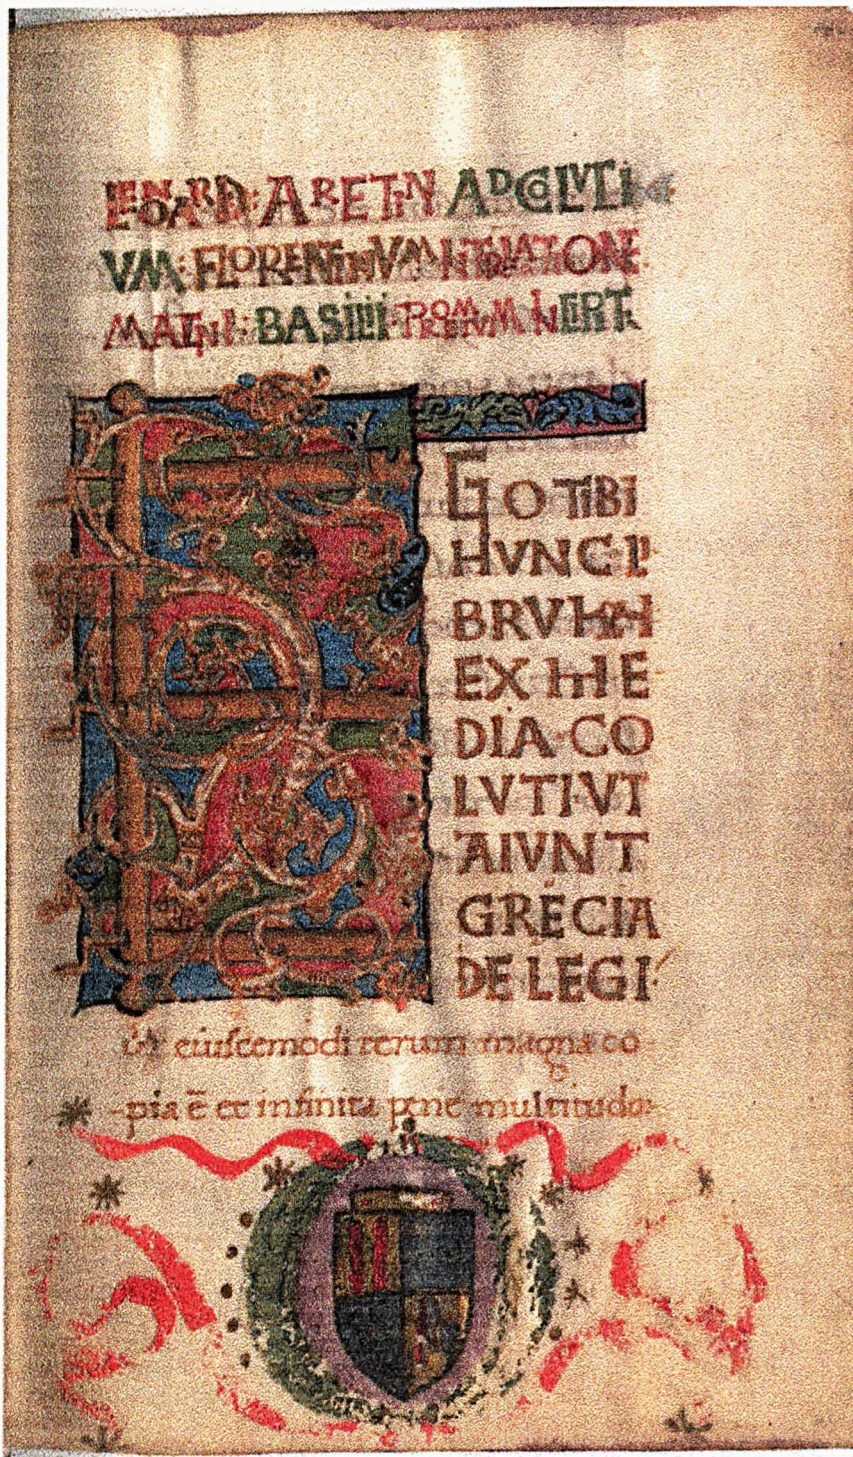 LEONARDI·ARETINI AD COLUTI
VM·FLORENTINVM IN TRALATIONE
MAGNI·BASILII·PROEMIVM INCIPT.
EGO TIBI
HVNC LI
BRVM
EX ME
DIA·CO
LVTI·VT
AIVNT
GRECIA
DELEGI
Vbi eiuscemodi rerum magna co
pia ē et infinita pene multitudo